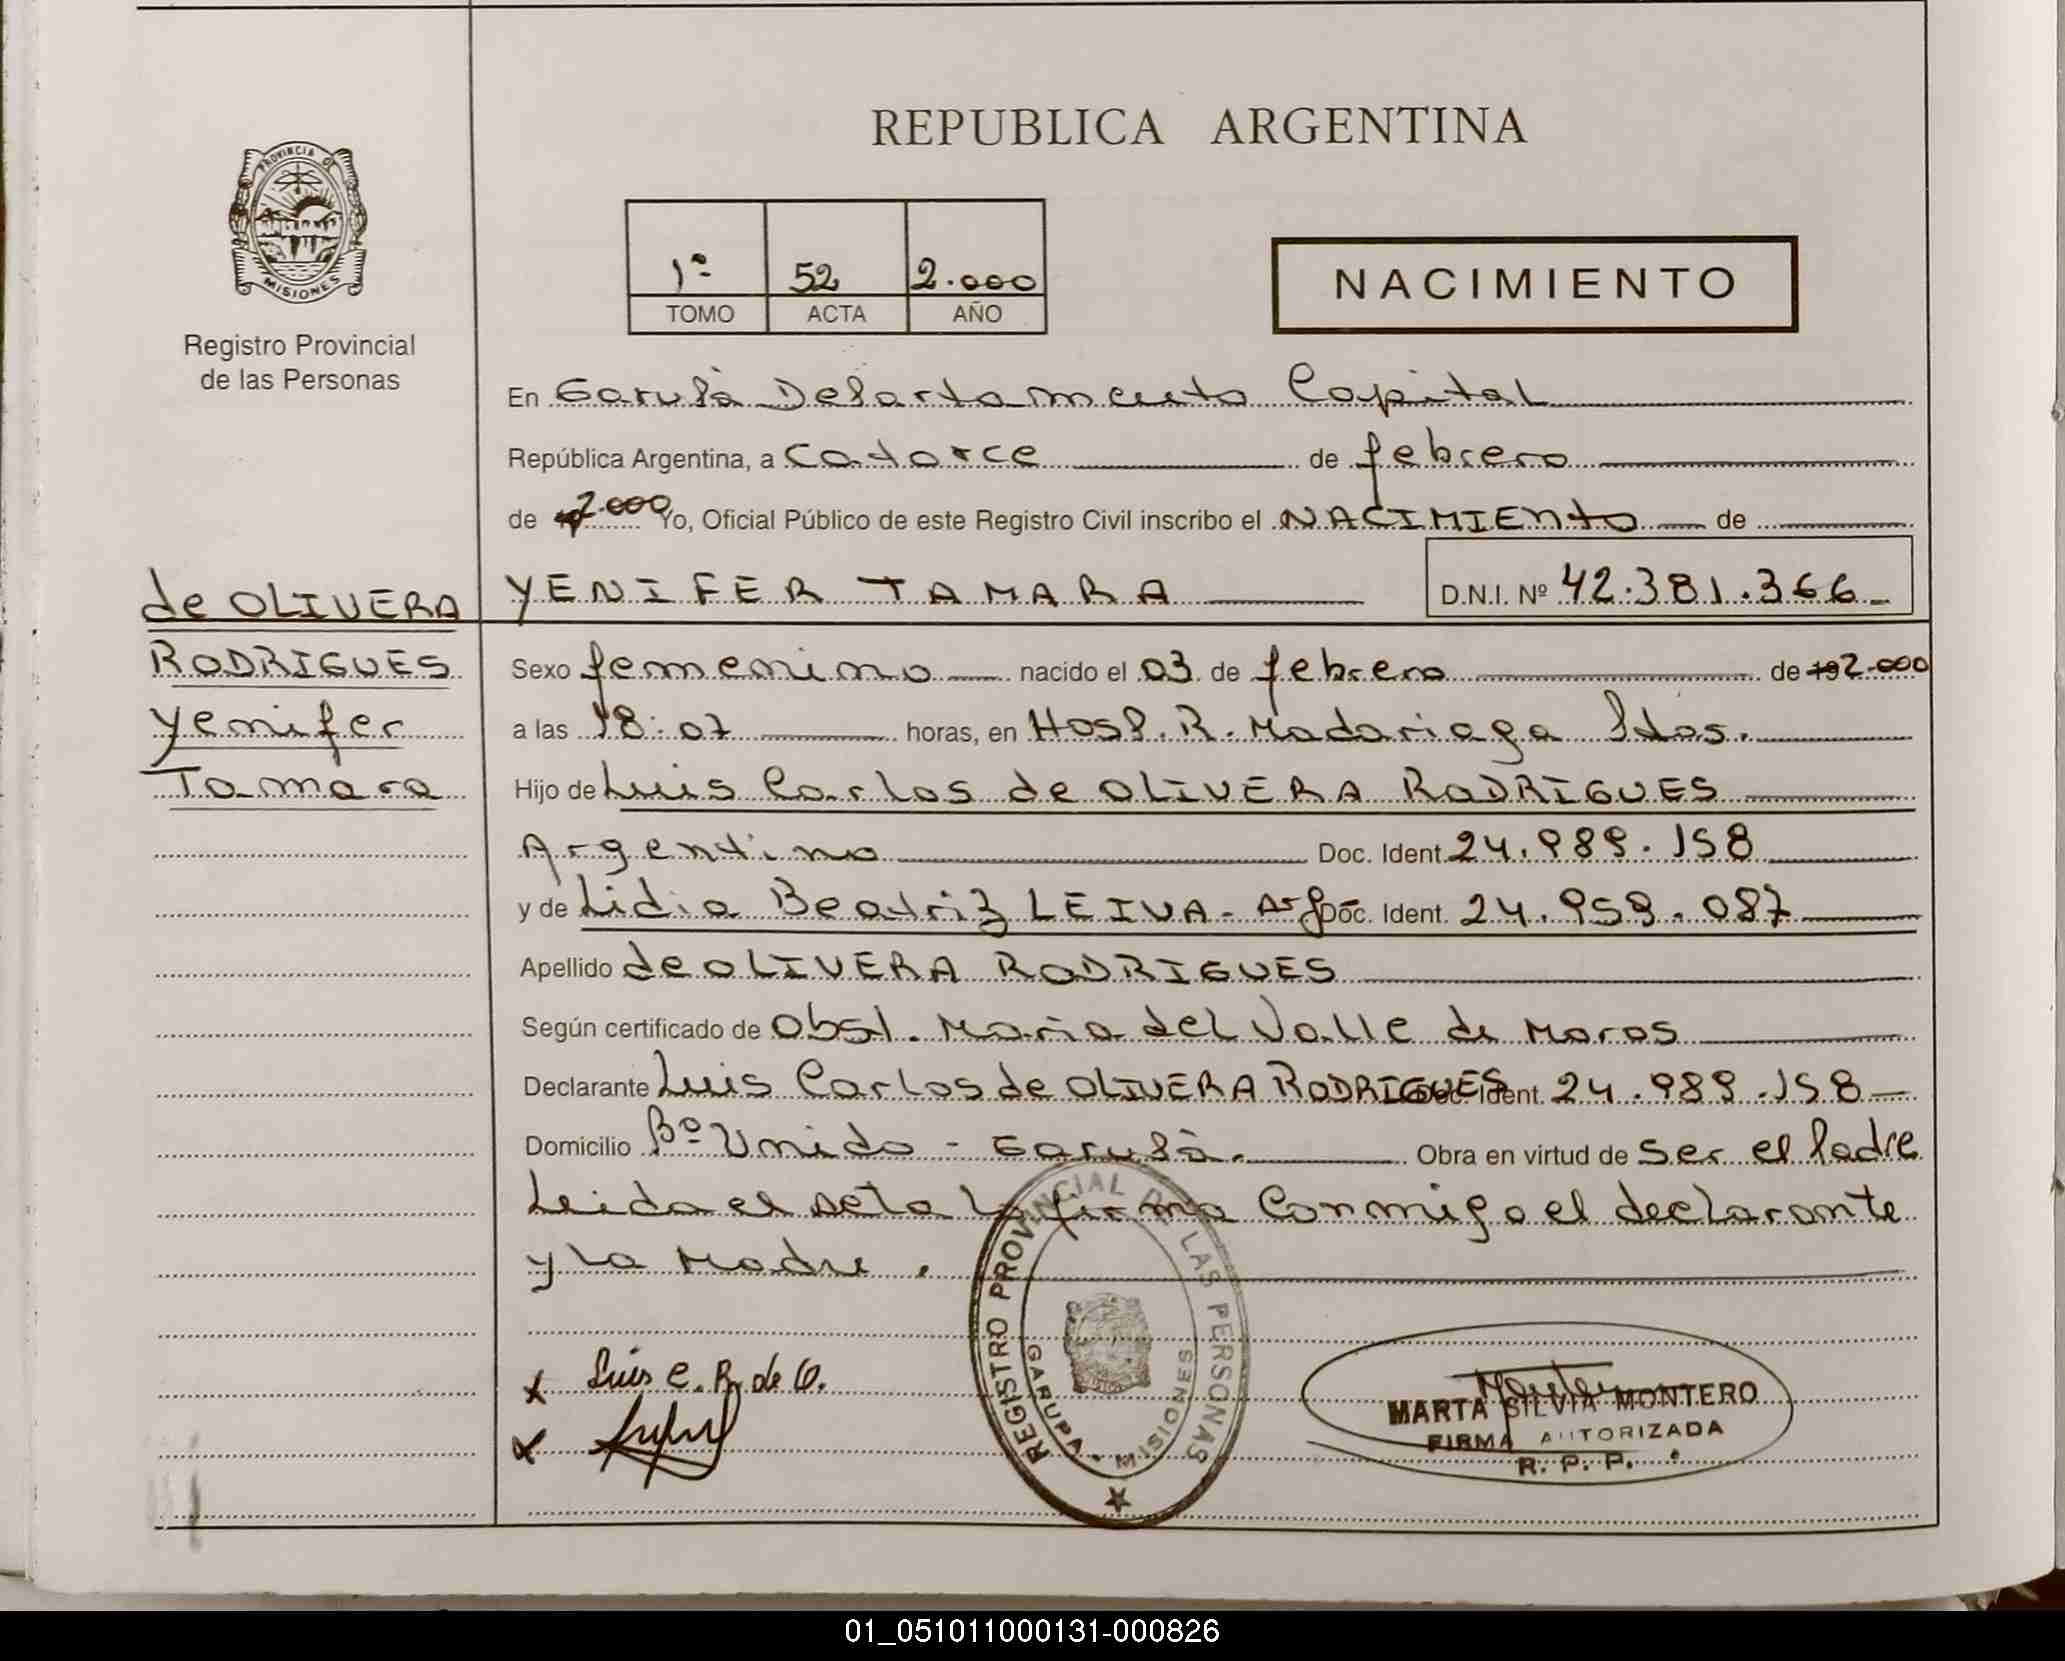 REPUBLICA ARGENTINA
PROVINCIA DE
MISIONES
Registro Provincial
de las Personas
1º 52 2.000
TOMO ACTA AÑO
NACIMIENTO
En Garupá Departamento Capital
República Argentina, a catorce de febrero
de 2.000 Yo, Oficial Público de este Registro Civil inscribo el NACIMIENTO de
YENIFER TAMARA D.N.I. Nº 42.381.366
de OLIVERA
RODRIGUES
Yenifer
Tamara
Sexo femenino nacido el 03 de febrero de 192.000
a las 18:07 horas, en Hosp. R. Madariaga Pdos.
Hijo de Luis Carlos de OLIVERA RODRIGUES
Argentino Doc. Ident. 24.989.158
y de Lidia Beatriz LEIVA - Arg Doc. Ident. 24.959.087
Apellido de OLIVERA RODRIGUES
Según certificado de Obst. Maria del Valle de Moros
Declarante Luis Carlos de OLIVERA RODRIGUES Doc. Ident. 24.989.158
Domicilio Bº Unido - Garupá. Obra en virtud de ser el Padre
Leida el acta la firma conmigo el declarante
y la Madre.
x Luis C. R. de O.
x
REGISTRO PROVINCIAL DE LAS PERSONAS
GARUPA - MISIONES
MARTA SILVIA MONTERO
FIRMA AUTORIZADA
R. P. P.
01_051011000131-000826